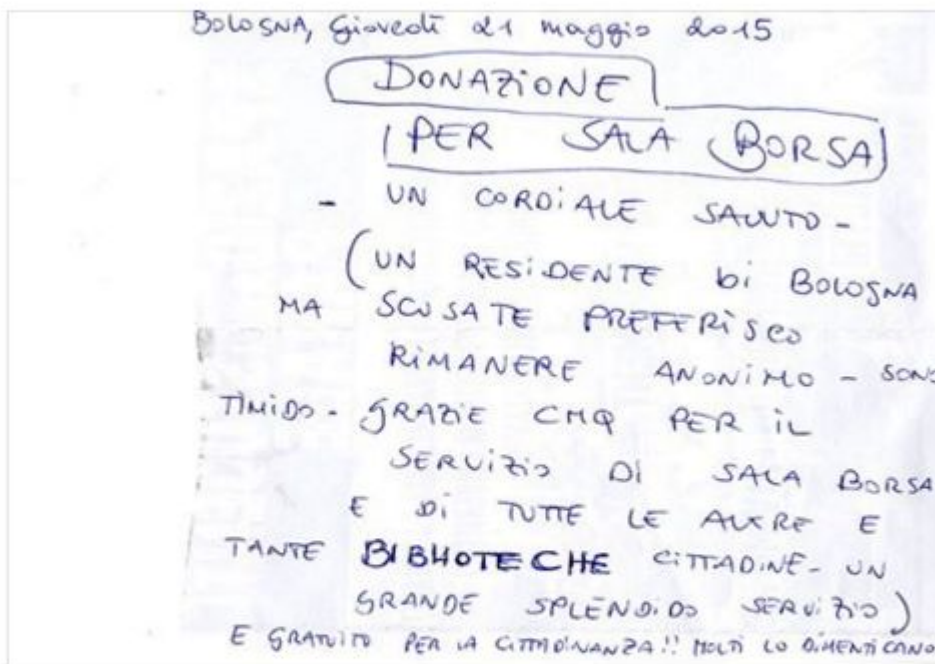 BOLOGNA, Giovedì 21 maggio 2015
DONAZIONE
PER SALA BORSA
- UN CORDIALE SALUTO -
(UN RESIDENTE di BOLOGNA
MA SCUSATE PREFERISCO
RIMANERE ANONIMO - SONO
TIMIDO - GRAZIE CMQ PER IL
SERVIZIO DI SALA BORSA
E DI TUTTE LE ALTRE E
TANTE BIBLIOTECHE CITTADINE - UN
GRANDE SPLENDIDO SERVIZIO)
E GRATUITO PER LA CITTADINANZA!! MOLTI LO DIMENTICANO